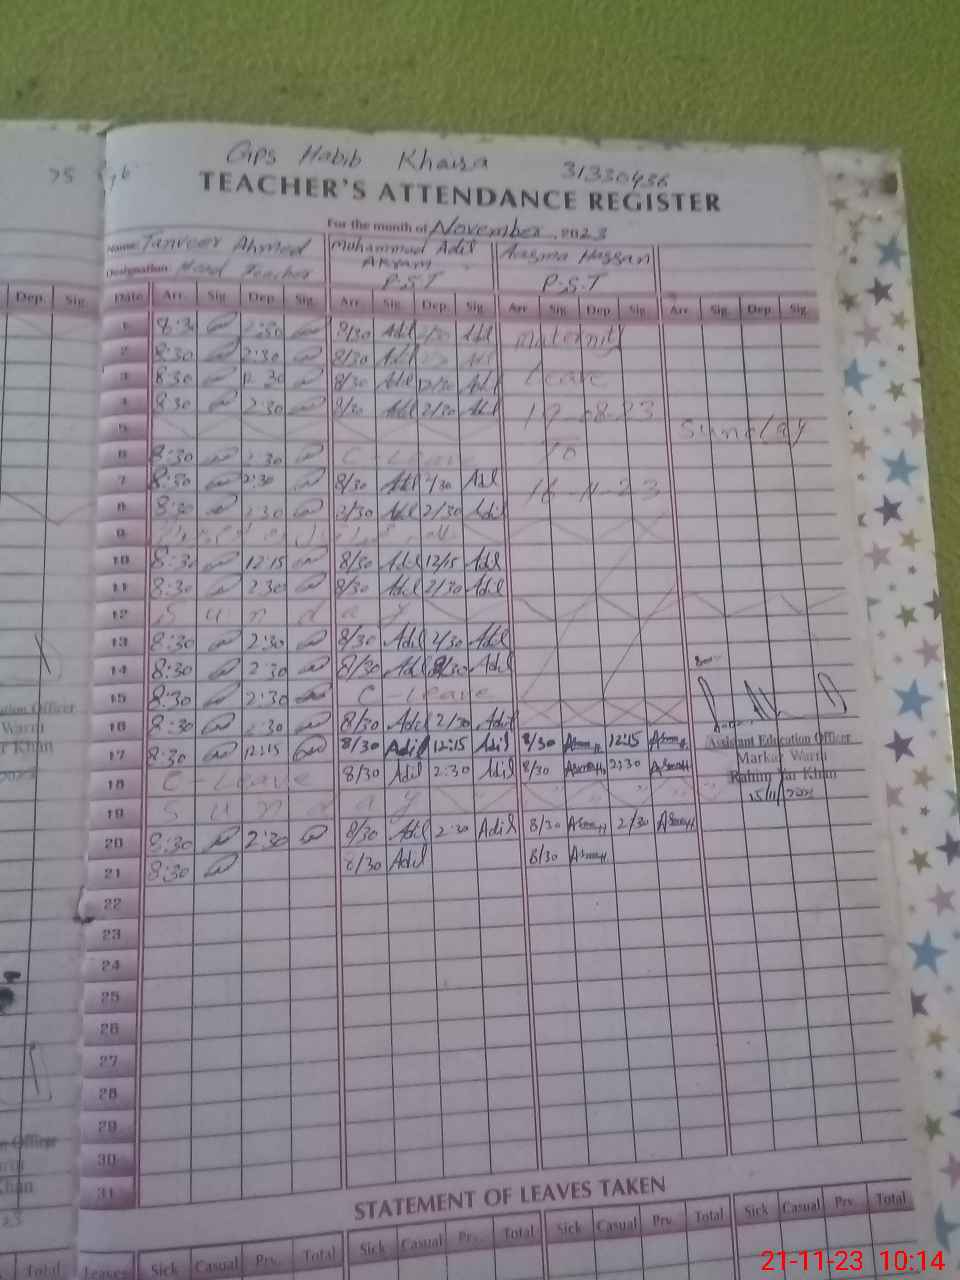 75
76
GPS Habib Khaisa 31330436
TEACHER'S ATTENDANCE REGISTER
For the month of November, 2023
Name: Tanveer Ahmed Muhammad Adil Akram Aasma Hassan
Designation: Head Teacher P.S.T P.S.T
Dep. Sig. Date Arr. Sig. Dep. Sig. Arr. Sig. Dep. Sig. Arr. Sig. Dep. Sig. Arr. Sig. Dep. Sig.
1 8:30 2:30 8/30 Adil 2/30 Adil Maternity
2 8:30 2:30 8/30 Adil
3 8:30 12:30 8/30 Adil 12/30 Adil Leave
4 8:30 2:30 8/30 Adil 2/30 Adil 17-08-23
5 Sunday
6 8:30 2:30 C-Leave To
7 8:30 2:30 8/30 Adil 2/30 Adil 16-11-23
8 8:30 2:30 8/30 Adil 2/30 Adil
9
10 8:30 12:15 8/30 Adil 12/15 Adil
11 8:30 2:30 8/30 Adil 2/30 Adil
12 Sunday
13 8:30 2:30 8/30 Adil 2/30 Adil
14 8:30 2:30 8/30 Adil 2/30 Adil
15 8:30 2:30 C-Leave
16 8:30 2:30 8/30 Adil 2/30 Adil
17 8:30 12:15 8/30 Adil 12:15 Adil 8/30 Asma 12:15 Asma
Assistant Education Officer
Markaz Warni
Rahim Yar Khan
15/11/2023
18 C-Leave 8/30 Adil 2:30 Adil 8/30 Asma 2:30 Asma
19 Sunday
20 8:30 2:30 8/30 Adil 2:30 Adil 8/30 Asma 2/30 Asma
21 8:30 8/30 Adil 8/30 Asma
22
23
24
25
26
27
28
29
30
31
STATEMENT OF LEAVES TAKEN
Total Leaves Sick Casual Prv. Total Sick Casual Prv. Total Sick Casual Prv. Total Sick Casual Prv. Total
21-11-23 10:14